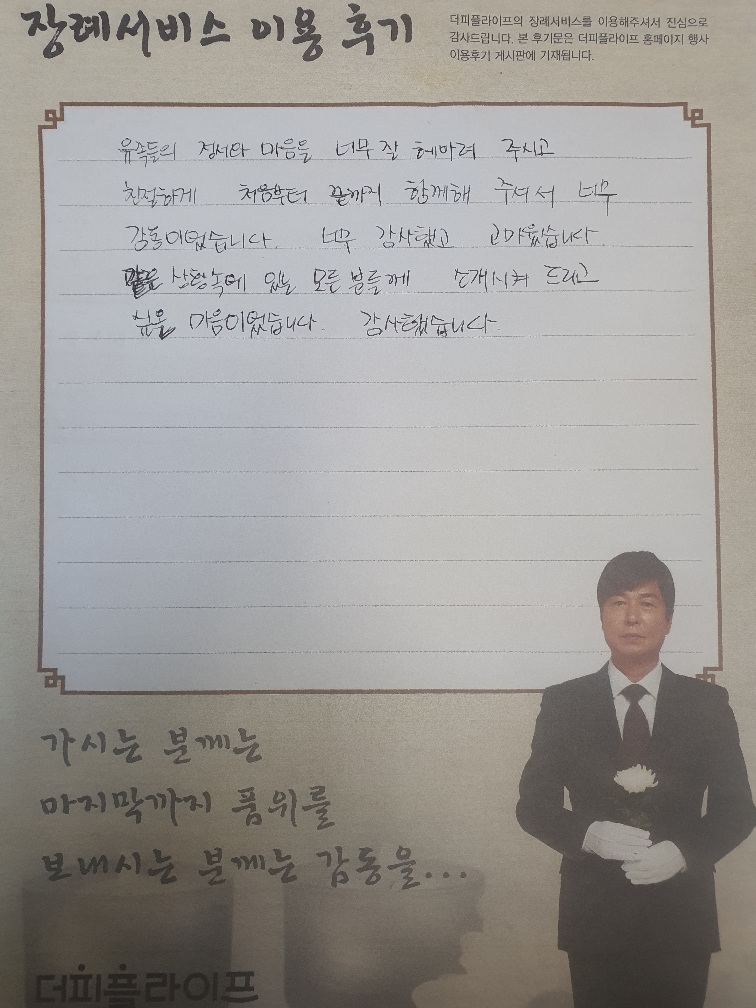 장례서비스 이용 후기
더피플라이프의 장례서비스를 이용해주셔서 진심으로
감사드립니다. 본 후기문은 더피플라이프 홈페이지 행사
이용후기 게시판에 기재됩니다.
유족들의 정서와 마음을 너무 잘 헤아려 주시고
친절하게 처음부터 끝까지 함께해 주셔서 너무
감동이었습니다. 너무 감사했고 고마웠습니다.
같은 상황속에 있는 모든 분들께 소개시켜 드리고
싶은 마음이었습니다. 감사했습니다.
가시는 분께는
마지막까지 품위를
보내시는 분께는 감동을...
더피플라이프